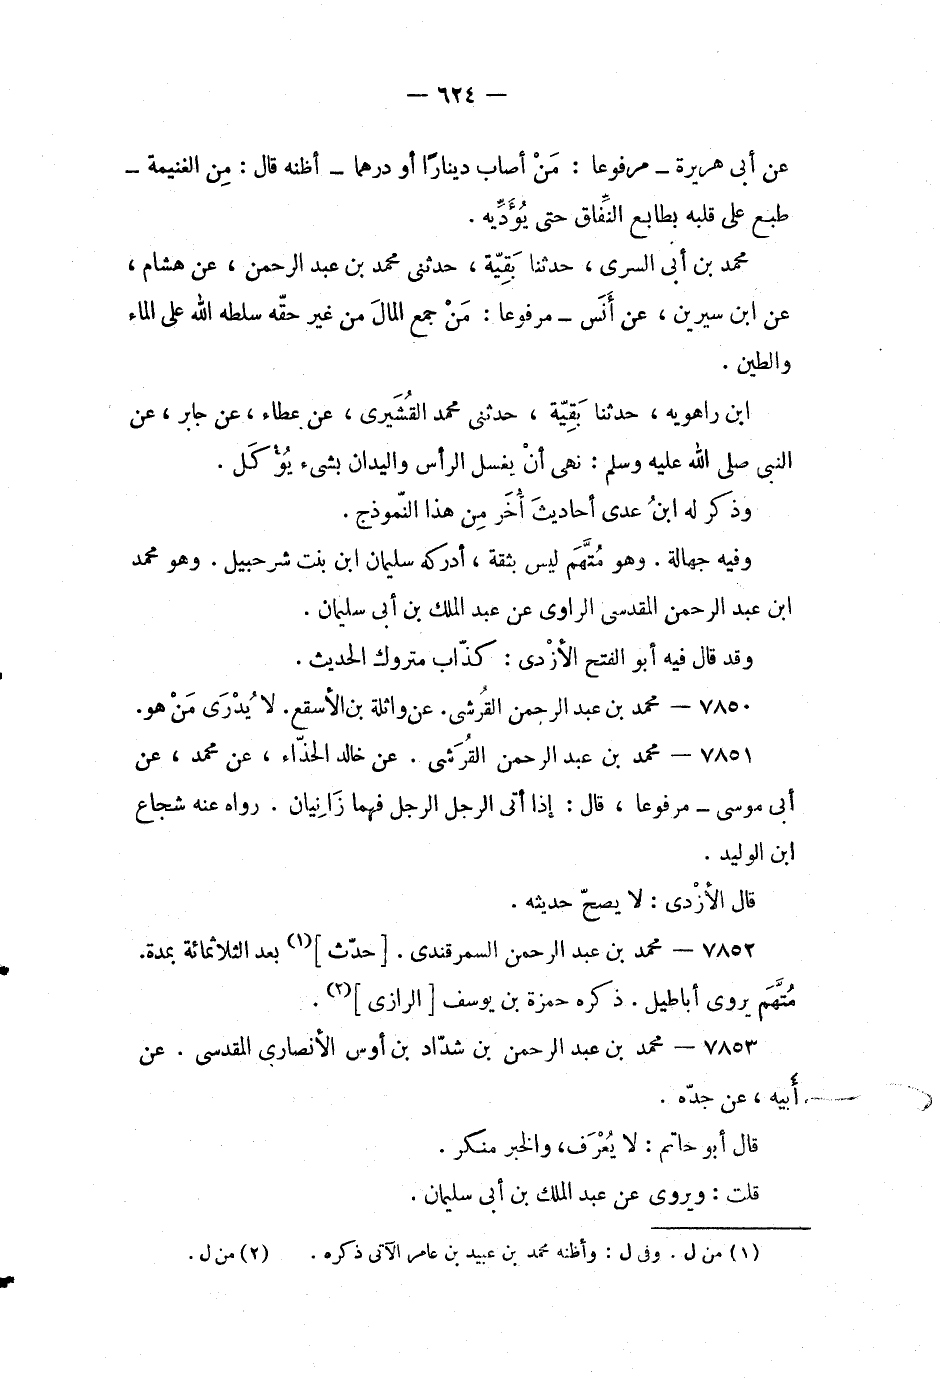 — ٦٢٤ —
عن أبى هريرة ـ مرفوعا : مَنْ أصاب دينارًا أو درهما ـ أظنه قال : مِن الغنيمة ـ
طبع على قلبه بطابع النِّفاق حتى يُؤَدِّيه .
محمد بن أبى السرى ، حدثنا بَقِيّة ، حدثنى محمد بن عبد الرحمن ، عن هشام ،
عن ابن سيرين ، عن أَنَس ـ مرفوعا : مَنْ جمع المالَ من غير حقّه سلطه الله على الماء
والطين .
ابن راهويه ، حدثنا بَقِيّة ، حدثنى محمد القُشَيرى ، عن عطاء ، عن جابر ، عن
النبى صلى الله عليه وسلم : نهى أنْ يغسل الرأس واليدان بشىء يُؤكَل .
وذكر له ابنُ عدى أحاديثَ أُخَر مِن هذا النّموذج .
وفيه جهالة . وهو مُتَّهَم ليس بثقة ، أدركه سليمان ابن بنت شرحبيل . وهو محمد
ابن عبد الرحمن المقدسى الراوى عن عبد الملك بن أبى سليمان .
وقد قال فيه أبو الفتح الأزْدى : كذّاب متروك الحديث .
٧٨٥٠ — محمد بن عبد الرحمن القُرشى . عن واثلة بن الأسقع . لا يُدْرَى مَنْ هو .
٧٨٥١ — محمد بن عبد الرحمن القُرَشى . عن خالد الحذّاء ، عن محمد ، عن
أبى موسى ـ مرفوعا ، قال : إذا أتى الرجل الرجل فهما زَانِيان . رواه عنه شجاع
ابن الوليد .
قال الأزْدى : لا يصحّ حديثه .
٧٨٥٢ — محمد بن عبد الرحمن السمرقندى . [ حدّث ](١) بعد الثلاثمائة بمدة.
مُتَّهَم يروى أباطيل . ذكره حمزة بن يوسف [ الرازى ](٢) .
٧٨٥٣ — محمد بن عبد الرحمن بن شدّاد بن أوس الأنصارى المقدسى . عن
أبيه ، عن جدّه .
قال أبو حاتم : لا يُعْرَف ، والخبر منكر .
قلت : ويروى عن عبد الملك بن أبى سليمان .
(١) من ل . وفى ل : وأظنه محمد بن عبيد بن عامر الآتى ذكره . (٢) من ل .